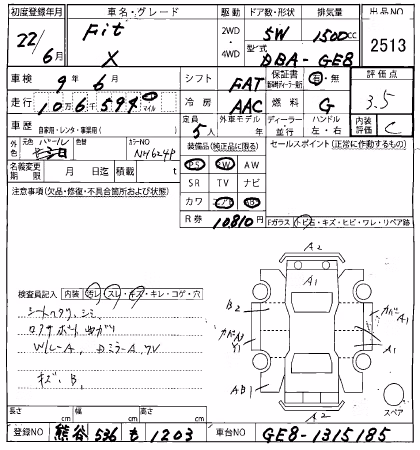 初度登録年月 車名・グレード 駆動 ドア数・形状 排気量 出品NO
22/6月 Fit X 2WD 4WD 5W 1500cc
型式 DBA-GE8 2513
車検 9年6月 シフト FAT 保証書 有・無 評価点
走行 10万6千594 マイル 冷房 AAC 燃料 G 3.5
車歴 自家用・レンタ・事業用( ) 定員 5人 外車モデル 年 ディーラー 並行 ハンドル 左・右 内装評価 C
外色 元色 パール 色替 カラーNO NH624P 装備品(純正品に限る) セールスポイント(正常に作動するもの)
名義変更期限 月 日迄 積載 t PS PW AW
注意事項(欠品・修復・不具合箇所および状態) SR TV ナビ
カワ エアB
R券 10810円 Fガラス トビ石・キズ・ヒビ・ワレ・リペア跡
A2
A1
検査員記入 内装 汚レ・スレ・キズ・キレ・コゲ・穴 B2 カバーA1
シートヘタリ、シミ
コアサポート曲ガリ Y1 A1
W/L-A、DミラーA、フV AB1
キズ、B、
A2 スペア
長さ cm 幅 cm 高さ cm
登録NO 熊谷 536 も 1203 車台NO GE8-1315185